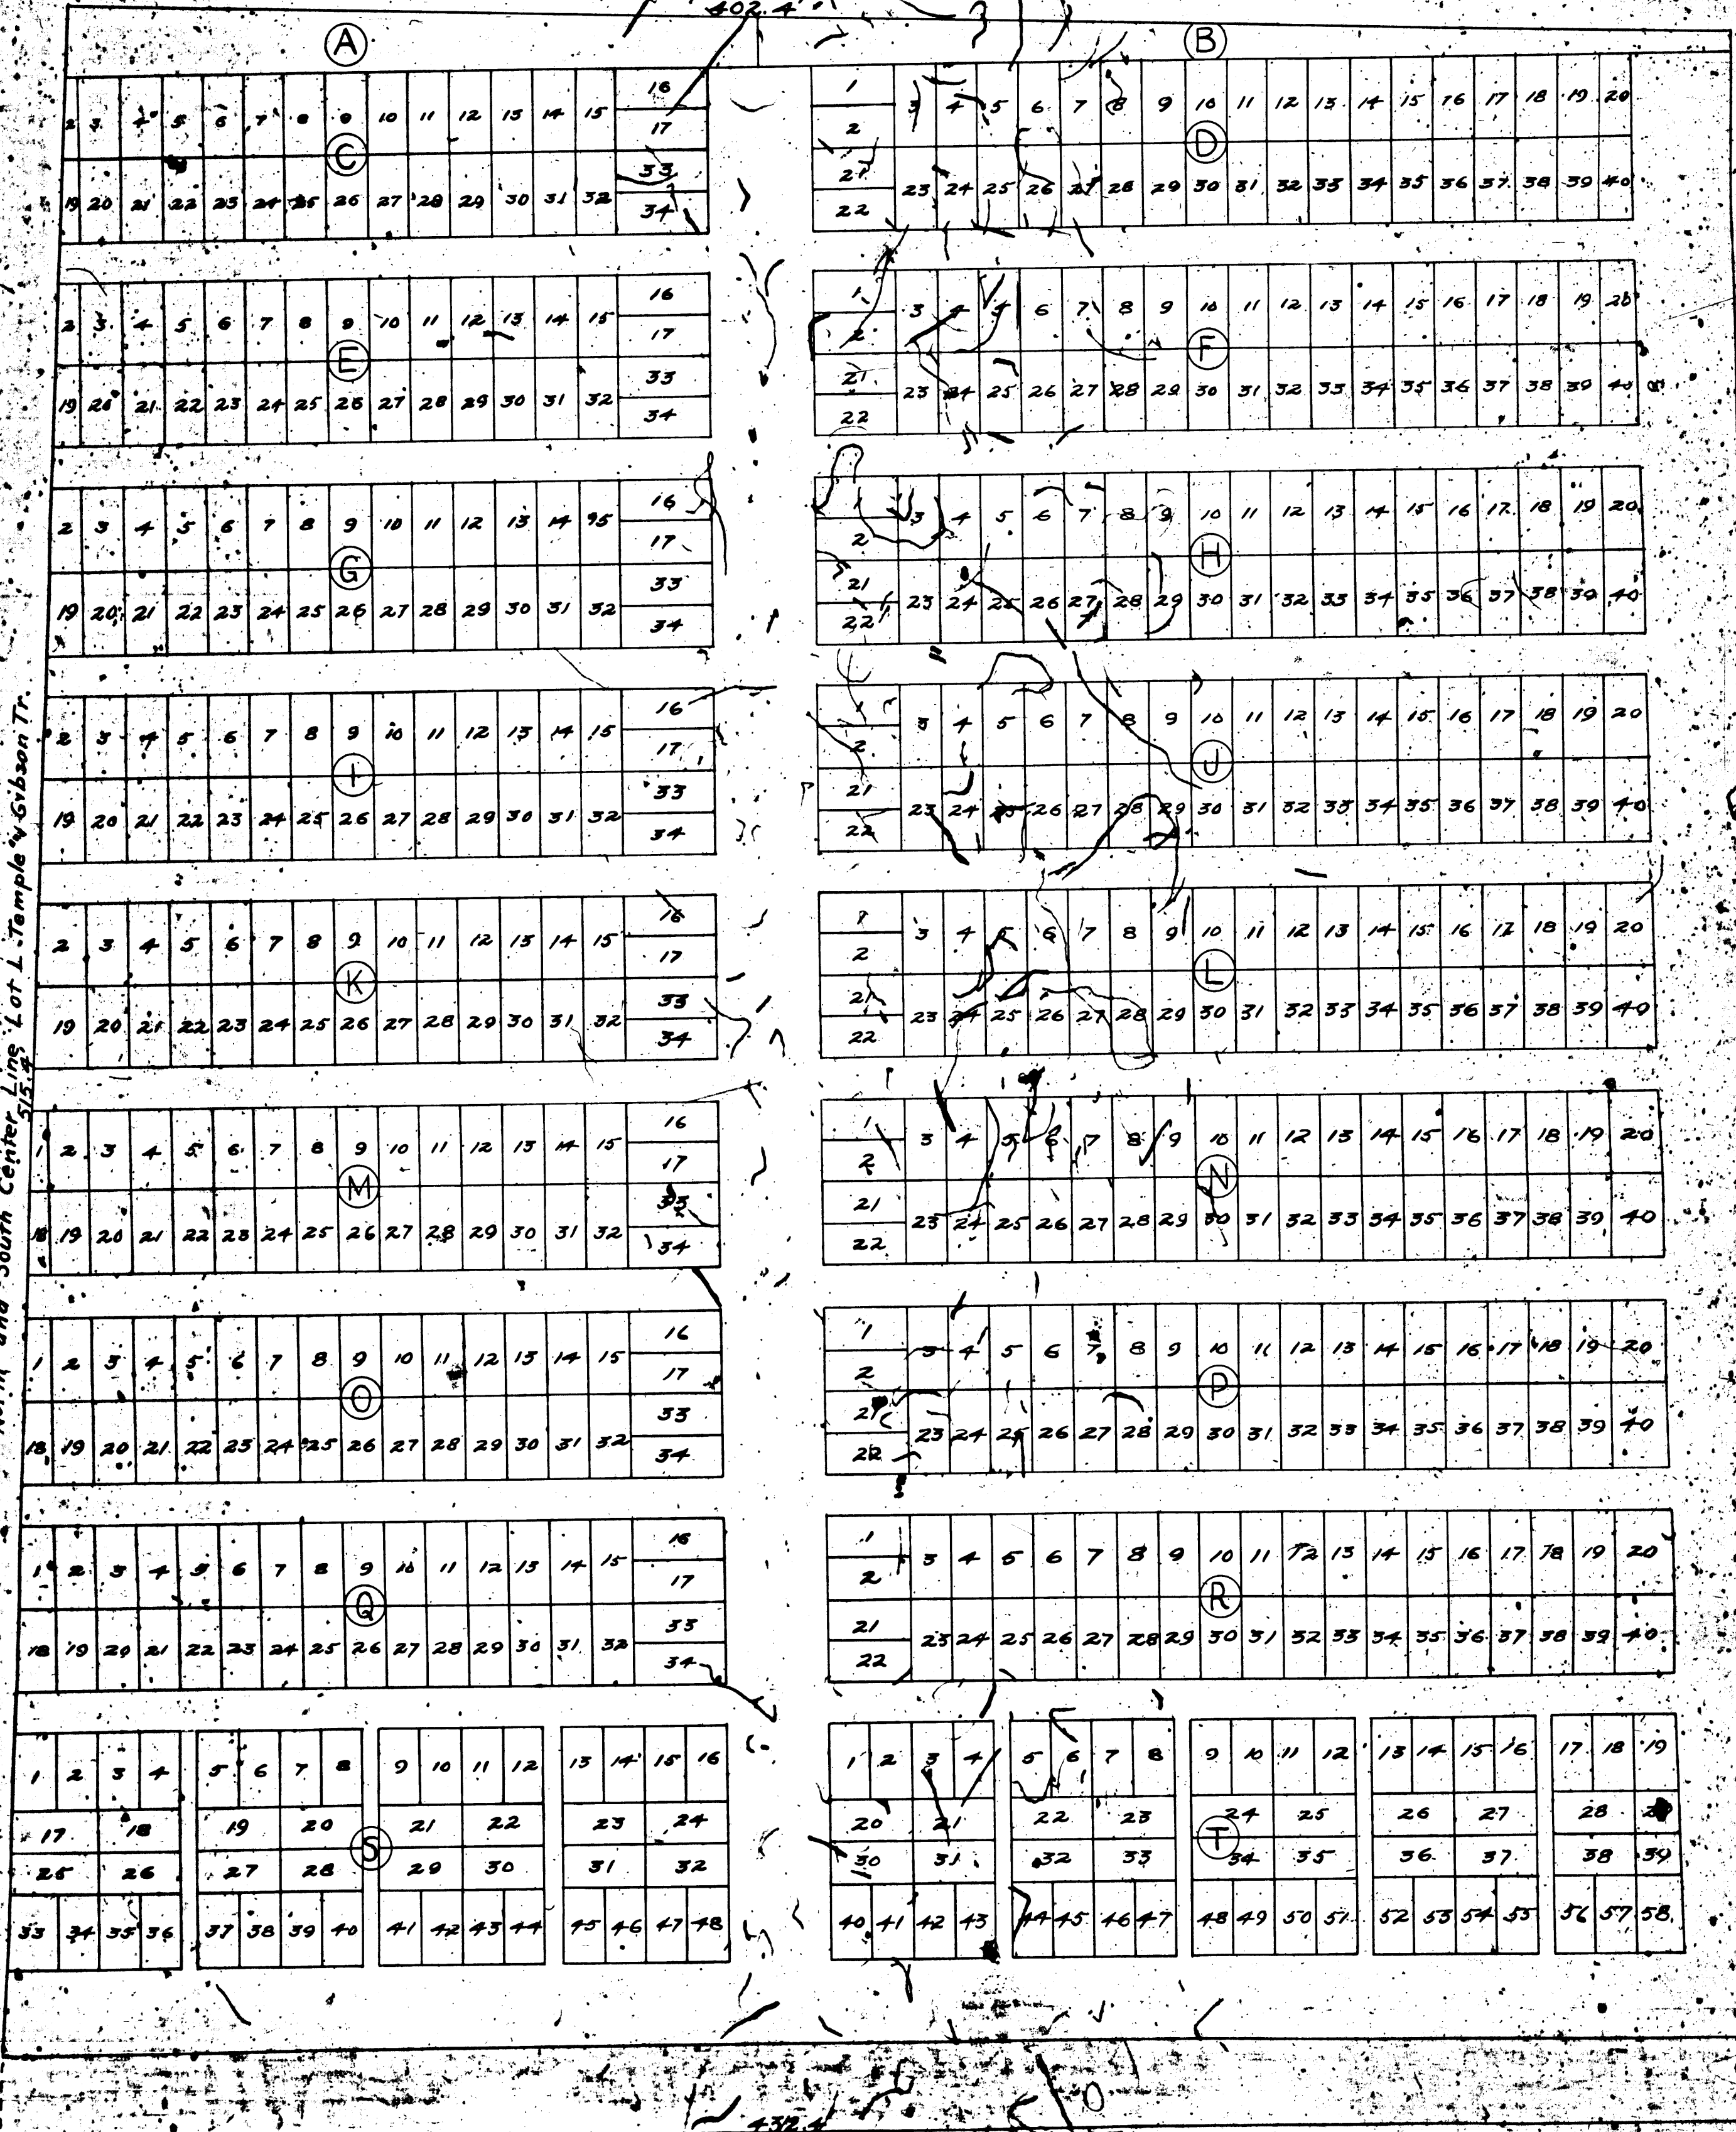 402.4'
A B
2 3 4 5 6 7 8 9 10 11 12 13 14 15 16 17
C
19 20 21 22 23 24 25 26 27 28 29 30 31 32 33 34
1 2 3 4 5 6 7 8 9 10 11 12 13 14 15 16 17 18 19 20
D
21 22 23 24 25 26 27 28 29 30 31 32 33 34 35 36 37 38 39 40
2 3 4 5 6 7 8 9 10 11 12 13 14 15 16 17
E
19 20 21 22 23 24 25 26 27 28 29 30 31 32 33 34
1 2 3 4 5 6 7 8 9 10 11 12 13 14 15 16 17 18 19 20
F
21 22 23 24 25 26 27 28 29 30 31 32 33 34 35 36 37 38 39 40
2 3 4 5 6 7 8 9 10 11 12 13 14 95 16 17
G
19 20 21 22 23 24 25 26 27 28 29 30 31 32 33 34
1 2 3 4 5 6 7 8 9 10 11 12 13 14 15 16 17 18 19 20
H
21 22 23 24 25 26 27 28 29 30 31 32 33 34 35 36 37 38 39 40
2 3 4 5 6 7 8 9 10 11 12 13 14 15 16 17
I
19 20 21 22 23 24 25 26 27 28 29 30 31 32 33 34
1 2 3 4 5 6 7 8 9 10 11 12 13 14 15 16 17 18 19 20
J
21 22 23 24 25 26 27 28 29 30 31 32 33 34 35 36 37 38 39 40
2 3 4 5 6 7 8 9 10 11 12 13 14 15 16 17
K
19 20 21 22 23 24 25 26 27 28 29 30 31 32 33 34
1 2 3 4 5 6 7 8 9 10 11 12 13 14 15 16 17 18 19 20
L
21 22 23 24 25 26 27 28 29 30 31 32 33 34 35 36 37 38 39 40
1 2 3 4 5 6 7 8 9 10 11 12 13 14 15 16 17
M
18 19 20 21 22 23 24 25 26 27 28 29 30 31 32 33 34
1 2 3 4 5 6 7 8 9 10 11 12 13 14 15 16 17 18 19 20
N
21 22 23 24 25 26 27 28 29 30 31 32 33 34 35 36 37 38 39 40
1 2 3 4 5 6 7 8 9 10 11 12 13 14 15 16 17
O
18 19 20 21 22 23 24 25 26 27 28 29 30 31 32 33 34
1 2 3 4 5 6 7 8 9 10 11 12 13 14 15 16 17 18 19 20
P
21 22 23 24 25 26 27 28 29 30 31 32 33 34 35 36 37 38 39 40
1 2 3 4 5 6 7 8 9 10 11 12 13 14 15 16 17
Q
18 19 20 21 22 23 24 25 26 27 28 29 30 31 32 33 34
1 2 3 4 5 6 7 8 9 10 11 12 13 14 15 16 17 18 19 20
R
21 22 23 24 25 26 27 28 29 30 31 32 33 34 35 36 37 38 39 40
1 2 3 4 5 6 7 8 9 10 11 12 13 14 15 16
17 18 19 20 21 22 23 24
S
25 26 27 28 29 30 31 32
33 34 35 36 37 38 39 40 41 42 43 44 45 46 47 48
1 2 3 4 5 6 7 8 9 10 11 12 13 14 15 16 17 18 19
20 21 22 23 24 25 26 27 28 29
T
30 31 32 33 34 35 36 37 38 39
40 41 42 43 44 45 46 47 48 49 50 51 52 53 54 55 56 57 58
and South Center Line Lot L Temple & Gibson Tr.
515.4'
432.4'